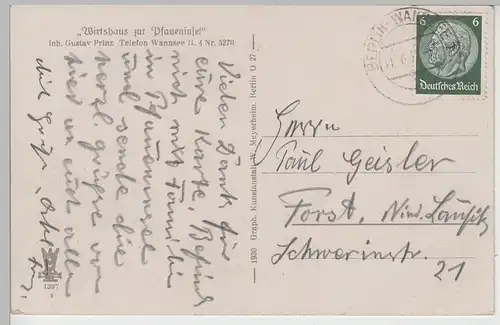 „Wirtshaus zur Pfaueninsel“
Inh. Gustav Prinz Telefon Wannsee G. 4 Nr. 5270
Vielen Dank für
eure Karte. Befinde
mich mit Familie
in Pfaueninsel
und sende die
herzl. Grüße von
hier an euch alle
1930 Graph. Kunstanstalt Meyerheim, Berlin O 27
1397
BERLIN-WANNSEE
6 6
Deutsches Reich
Herrn
Paul Geisler
Forst, Nied. Lausitz
Schwerinstr.
21